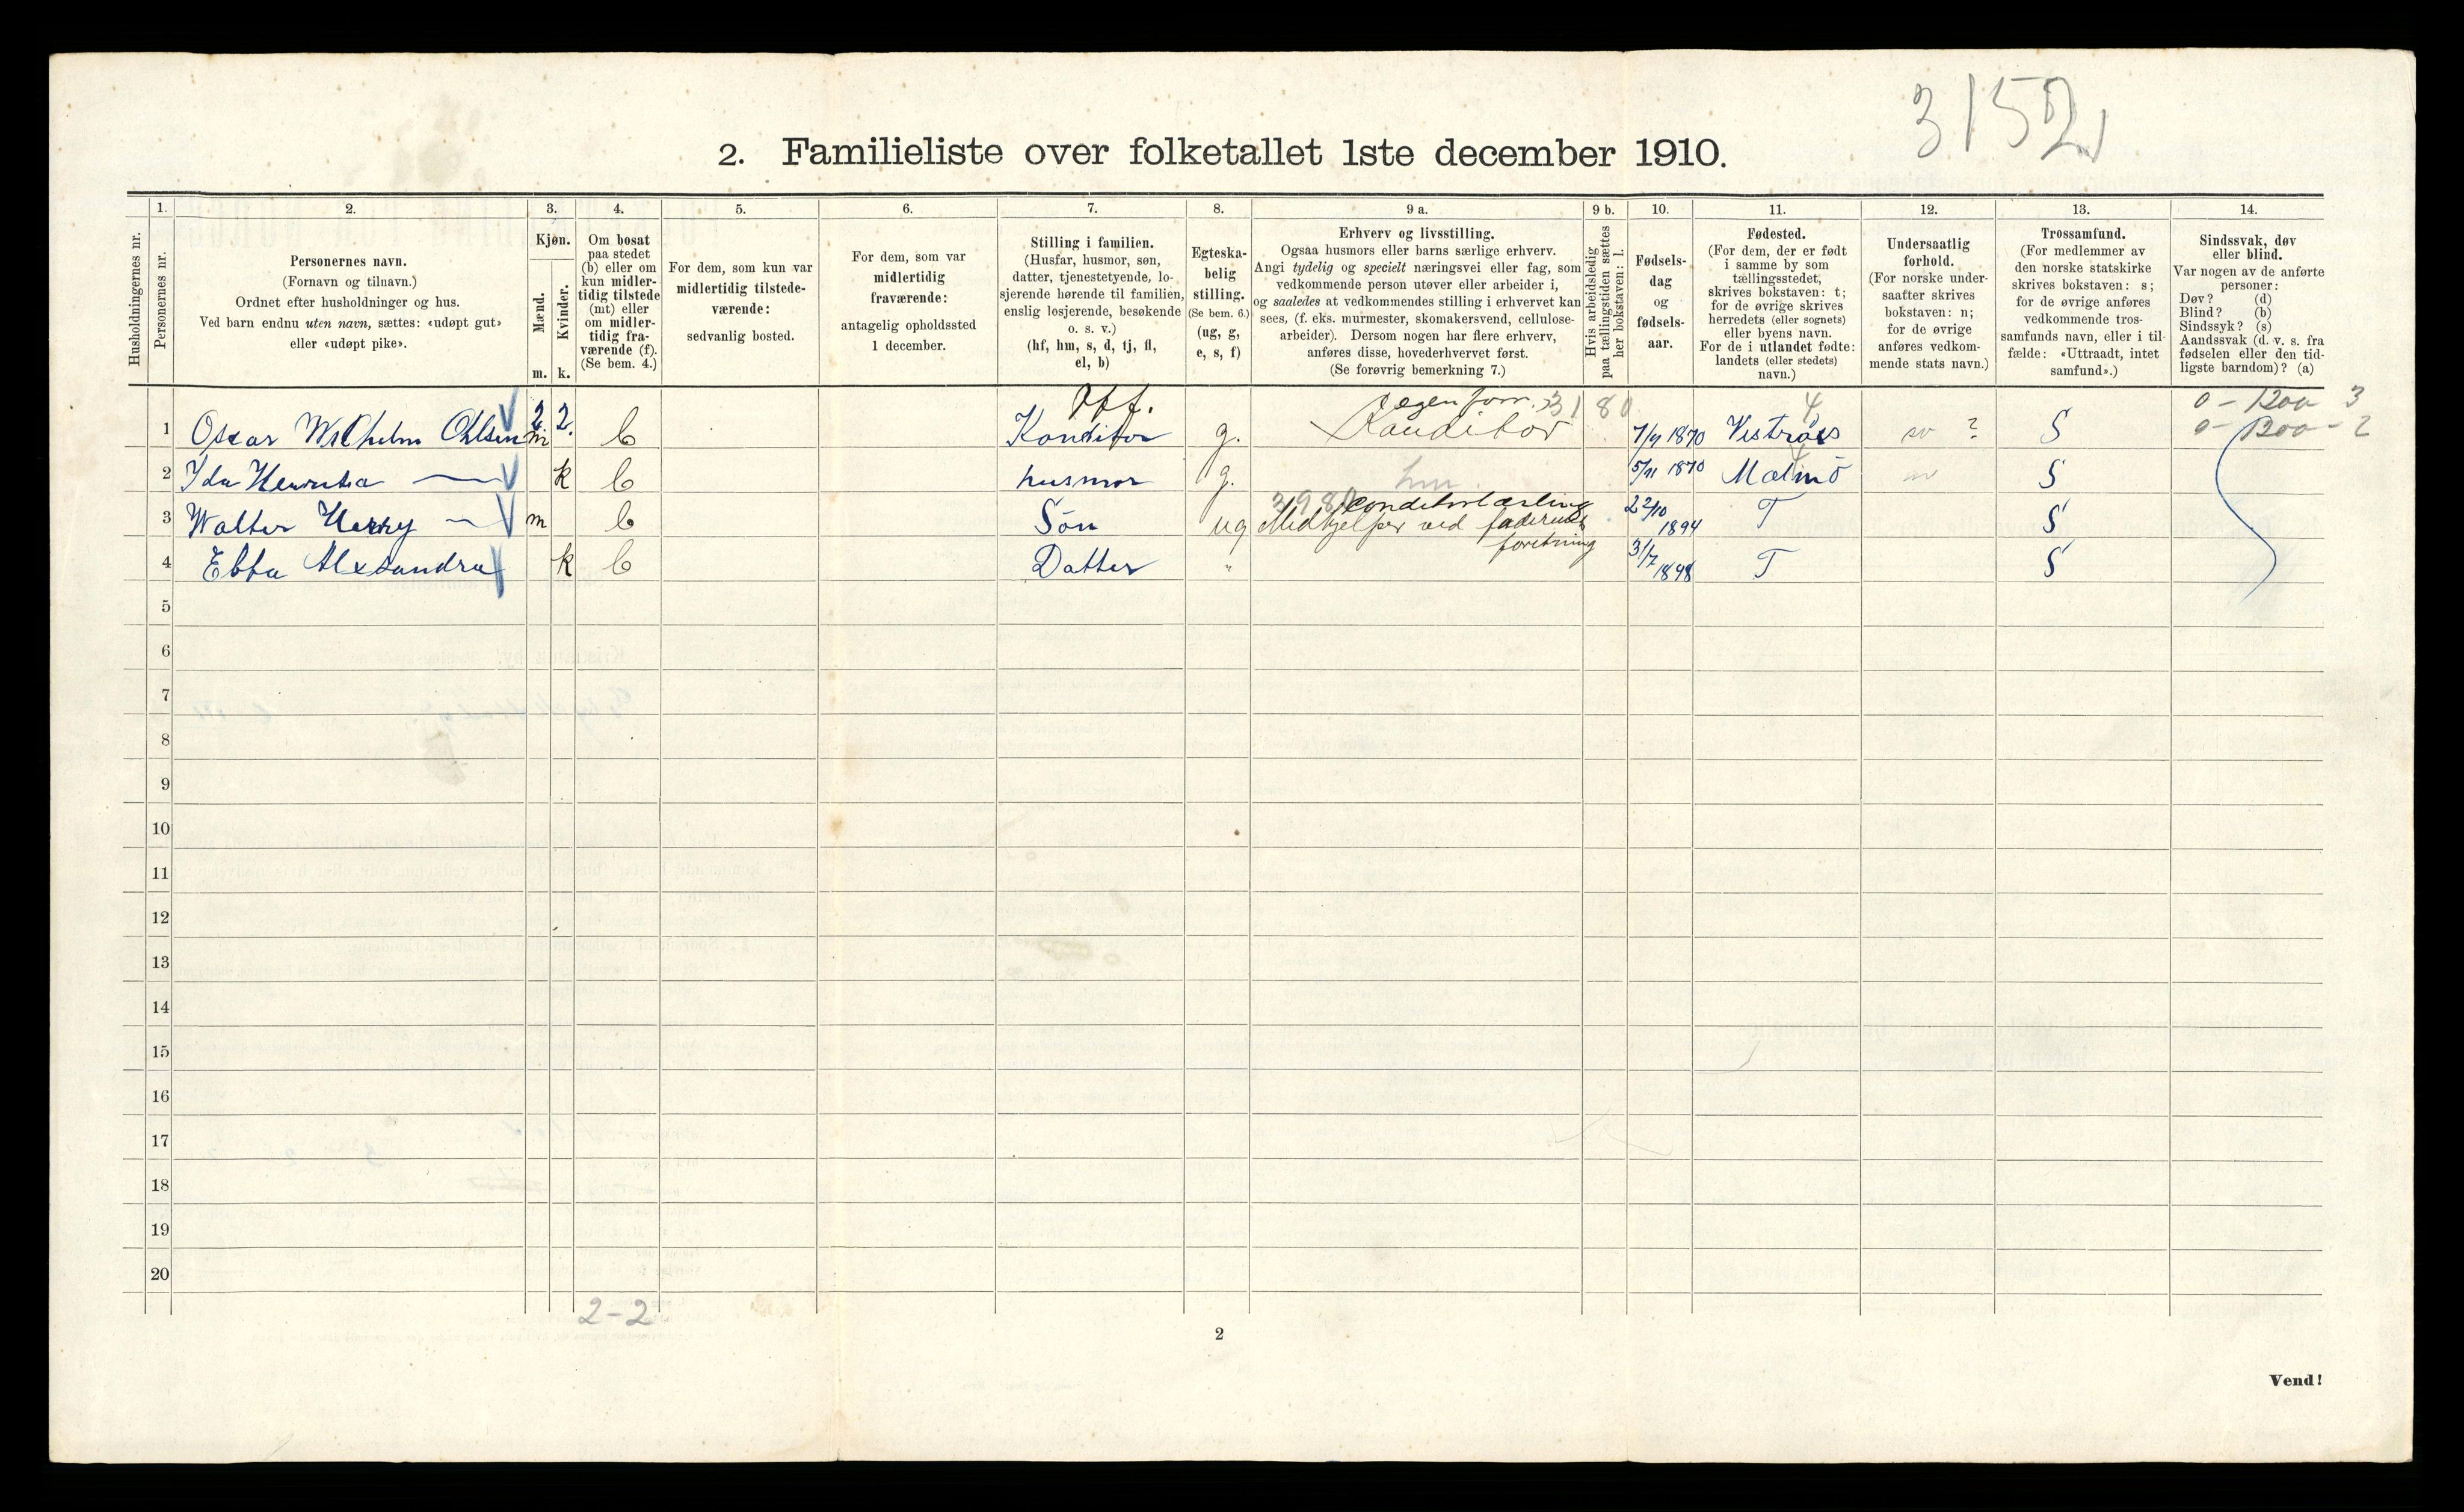 3152
2. Familieliste over folketallet 1ste december 1910.
1. 2. 3. 4. 5. 6. 7. 8. 9 a. 9 b. 10. 11. 12. 13. 14.
Husholdningernes nr.
Personernes nr.
Personernes navn.
(Fornavn og tilnavn.)
Ordnet efter husholdninger og hus.
Ved barn endnu uten navn, sættes: «udøpt gut»
eller «udøpt pike».
Kjøn.
Mænd.
Kvinder.
m. k.
Om bosat
paa stedet
(b) eller om
kun midler-
tidig tilstede
(mt) eller
om midler-
tidig fra-
værende (f).
(Se bem. 4.)
For dem, som kun var
midlertidig tilstede-
værende:
sedvanlig bosted.
For dem, som var
midlertidig
fraværende:
antagelig opholdssted
1 december.
Stilling i familien.
(Husfar, husmor, søn,
datter, tjenestetyende, lo-
sjerende hørende til familien,
enslig losjerende, besøkende
o. s. v.)
(hf, hm, s, d, tj, fl,
el, b)
Egteska-
belig
stilling.
(Se bem. 6.)
(ug, g,
e, s, f)
Erhverv og livsstilling.
Ogsaa husmors eller barns særlige erhverv.
Angi tydelig og specielt næringsvei eller fag, som
vedkommende person utøver eller arbeider i,
og saaledes at vedkommendes stilling i erhvervet kan
sees, (f. eks. murmester, skomakersvend, cellulose-
arbeider). Dersom nogen har flere erhverv,
anføres disse, hovederhvervet først.
(Se forøvrig bemerkning 7.)
Hvis arbeidsledig
paa tællingstiden sættes
her bokstaven: l.
Fødsels-
dag
og
fødsels-
aar.
Fødested.
(For dem, der er født
i samme by som
tællingsstedet,
skrives bokstaven: t;
for de øvrige skrives
herredets (eller sognets)
eller byens navn.
For de i utlandet fødte:
landets (eller stedets)
navn.)
Undersaatlig
forhold.
(For norske under-
saatter skrives
bokstaven: n;
for de øvrige
anføres vedkom-
mende stats navn.)
Trossamfund.
(For medlemmer av
den norske statskirke
skrives bokstaven: s;
for de øvrige anføres
vedkommende tros-
samfunds navn, eller i til-
fælde: «Uttraadt, intet
samfund».)
Sindssvak, døv
eller blind.
Var nogen av de anførte
personer:
Døv? (d)
Blind? (b)
Sindssyk? (s)
Aandssvak (d. v. s. fra
fødselen eller den tid-
ligste barndom)? (a)
2. 2. hf. egen forr. 3180 4 0 - 1200 3
1 Oscar Wilhelm Ohlsen m b Konditor g. Konditor 7/9 1870 Vestrås sv ? S 0 - 1200 - 2
2 Ida k b husmor g. hm 5/11 1870 Malmö sv S
3980 Conditorlærling
3 Walter Harry m b Sön ug Medhjelper ved faderens 22/10 1894 T S
forretning
4 Ebba Alexsandra k b Datter " 31/7 1898 T S
5
6
7
8
9
10
11
12
13
14
15
16
17
18
19
20
2-2
2
Vend!